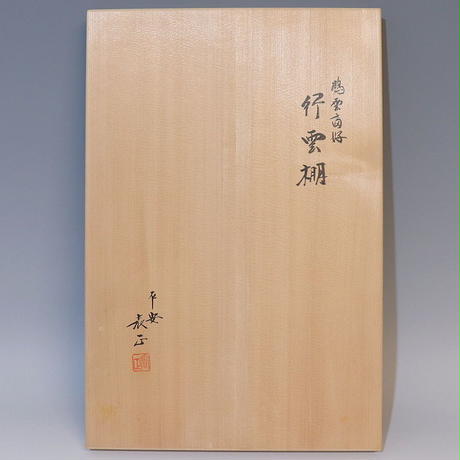 鵬雲斎好
行雲棚
平安 表正